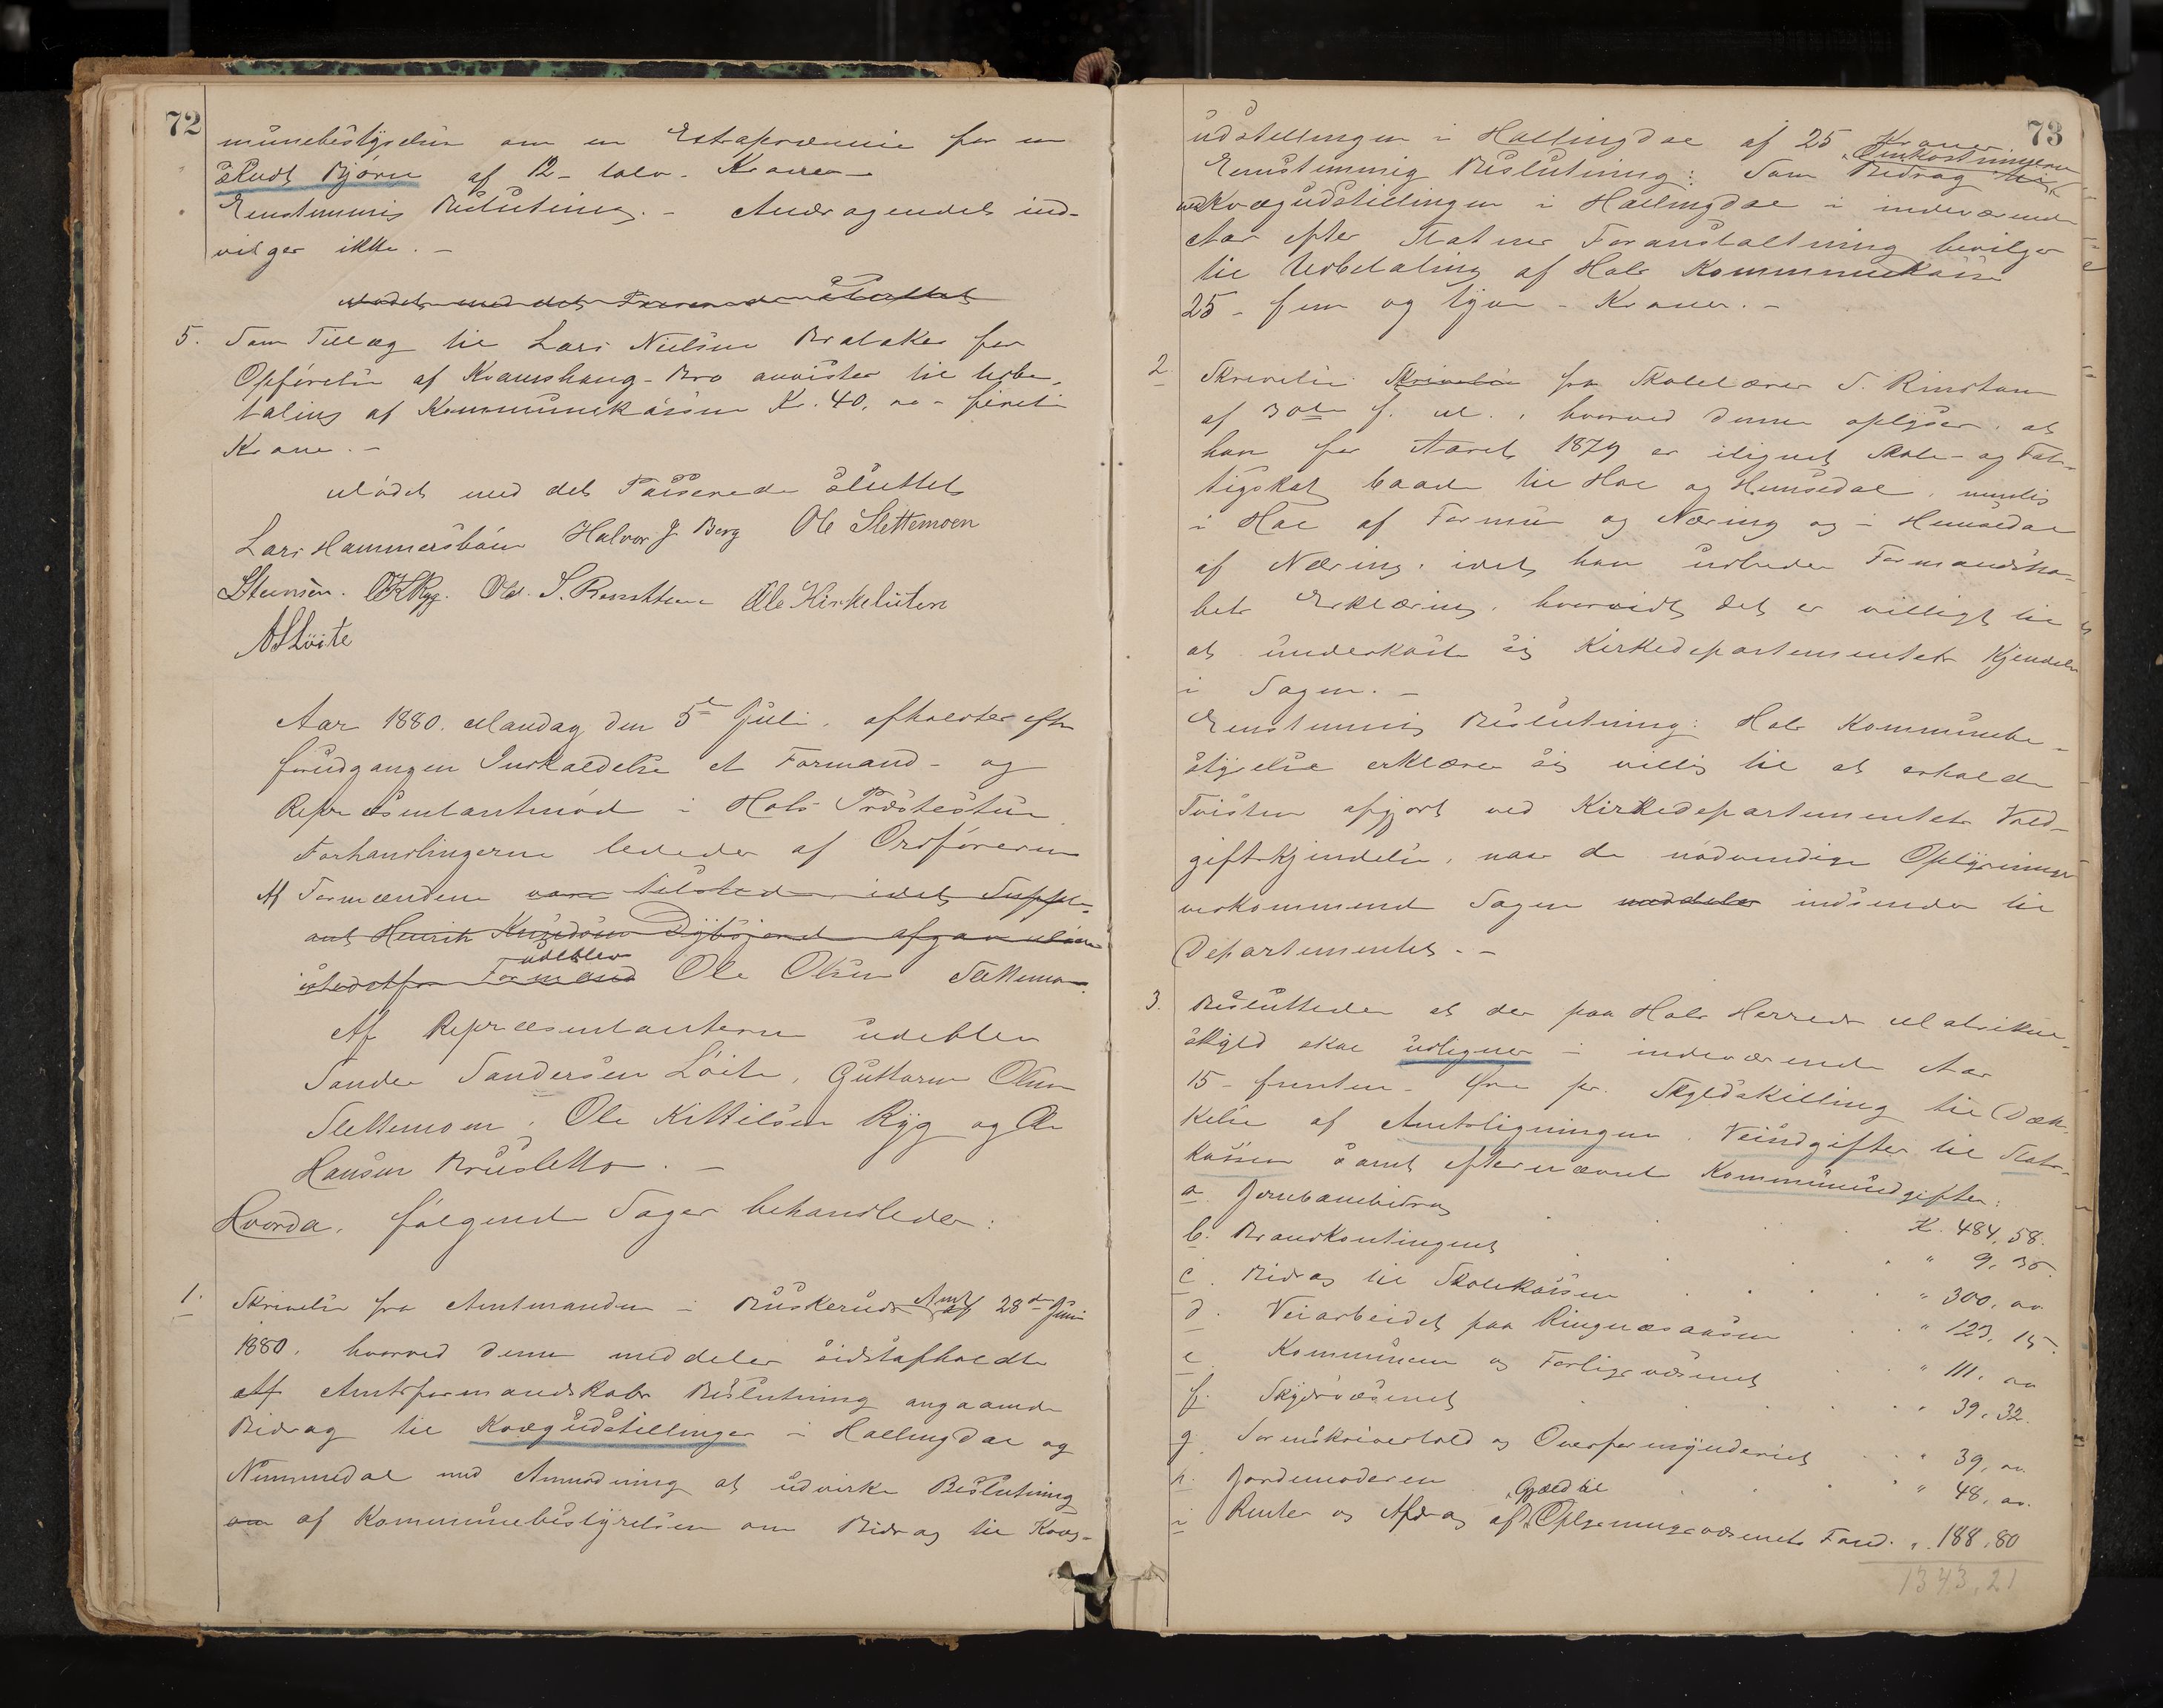 72
munebestyrelsen om en Extrapræmie for en
skudt Bjørn af 12 - tolv - Kroner
Eenstemmig Beslutning. - Andragendet ind-
vilges ikke. -
Mødet med det Passerede sluttet
5. Som Tillæg til Lars Nielsen Brataker for
Opførelse af Kvamshaug-Bro anvistes til Udbe-
taling af Kommunekassen Kr. 40, oo - fireti
Krone. -
Mødet med det Passerede sluttet
Lars Hammersbøen Halvor J Berg Ole Slettemoen
Steensen. OKRyg. Old. S. Ole Kirkeluten
ASLöite
Aar 1880. Mandag den 5te Juli. afholdtes efter
forudgangen Indkaldelse et Formand- og
Repræsentantmød i Hols Præstestue
Forhandlingerne lededes af Ordføreren
Af Formændene vare tilstede, idet Supple-
ant Henrik afgav Møde
udeblev
istedetfor Formand Ole Olsen Slettemoen.
Af Repræsentanterne udeblev
Sander Sandersen Löite, Guttorm Olsen
Slettemoen, Ole Kittilsen Ryg og Ole
Hansen Brusletto. -
Hvorda, følgende Sager behandledes:
1. Skrivelse fra Amtmanden i Buskeruds Amt af 28de Juni
1880, hvorved denne meddeler sidstafholdte
Af Amtsformandskabs Beslutning angaaende
Bidrag til Kvægudstillinger i Hallingdal og
Nummedal med Anmodning at udvirke Beslutning
om af Kommunebestyrelsen om Bidrag til Kvæg-
73
udstillingen i Hallingdal af 25 Kroner
Omkostningerne
Eenstemmig Beslutning: Som Bidrag til
ved Kvægudstillingen i Hallingdal i indeværende
Aar efter Statens Foranstaltning bevilges
til Udbetaling af Hols Kommunekasse
25 - fem og tyve - Kroner. -
2. Skrivelse Skrivelse fra Skolelærer S.
af 30te f. M., hvorved denne oplyser, at
han for Aaret 1879 er ilignet Skole- og Fat-
tigskat baade til Hol og Hemsedal, nemlig
i Hol af Formue og Næring og i Hemsedal
af Næring, idet han udbeder Formandska-
bets Erklæring, hvorvidt det er villigt til
at underkaste sig Kirkedepartementets Kjendelse
i Sagen. -
Eenstemmig Beslutning: Hols Kommunebe-
styrelse erklærer sig villig til at erholde
Tvisten afgjort ved Kirkedepartementets Vold-
giftskjendelse, naar de nødvendige Oplysninger
vedkommende Sagen meddeles indsendes til
Departementet. -
3. Besluttedes at der paa Hols Herreds Matrikul-
skyld skal udlignes i indeværende Aar
15 - femten - Øre pr. Skyldskilling til Dæk-
kelse af Amtsligningen, Veiudgifter til Stats-
kassen samt efternævnte Kommuneudgifter:
a. Jernbanebidrag K. 484, 58.
b. Brandkontingent " 9, 36.
c. Bidrag til Skolekassen " 300, oo
d. Veiarbeidet paa Ringnæsaasen " 123, 15.
e. Kommunens og Forligsvæsenet " 111, oo
f. Skydsvæsenet " 39, 32.
g. Sorenskriverhold og Overformynderiet " 39, oo
h. Jordemoderen " 48, oo.
Gjæld til
i Renter og Afdrag af Oplysningsvæsenets Fond. " 188, 80
1343,21